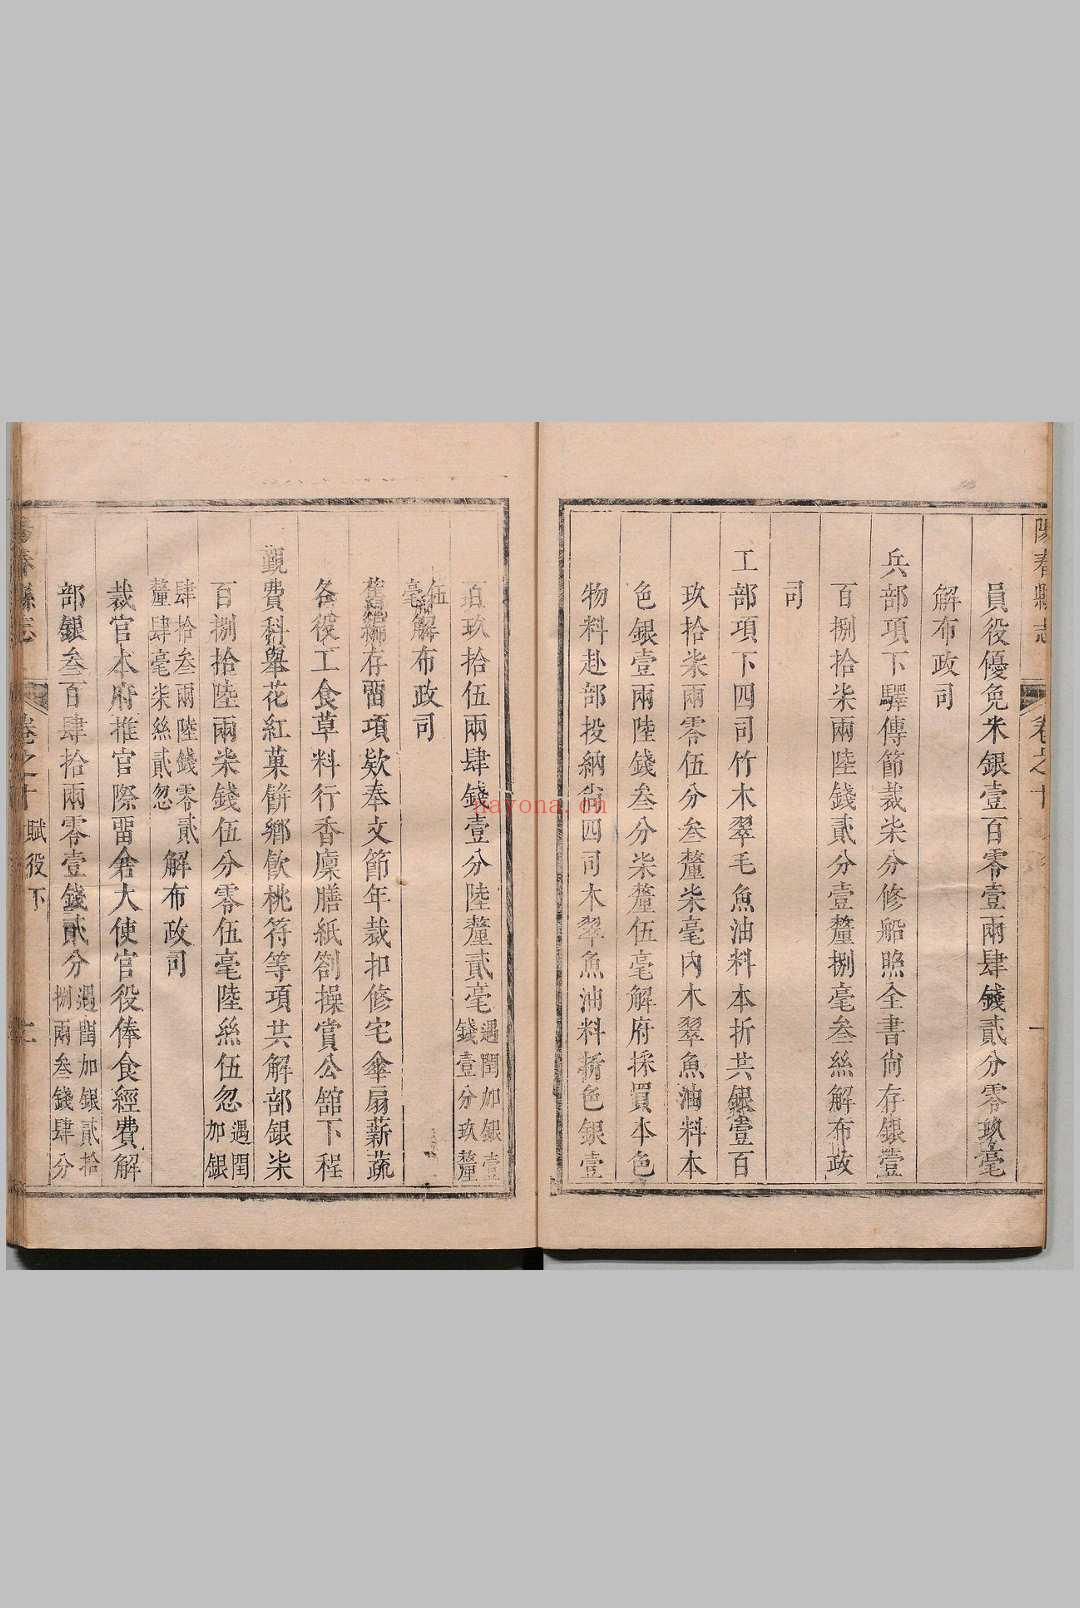 陽春縣志 卷之十
員役優免米銀壹百零壹兩肆錢貳分零玖毫
解布政司
兵部項下驛傳節裁柒分修船照全書尚存銀壹
百捌拾柒兩陸錢貳分壹釐捌毫叁絲解布政
司
工部項下四司竹木翠毛魚油料本折共銀壹百
玖拾柒兩零伍分叁釐柒毫內木翠魚油料本
色銀壹兩陸錢叁分柒釐伍毫解府採買本色
物料赴部投納尚四司木翠魚油料折色銀壹
百玖拾伍兩肆錢壹分陸釐貳毫遇閏加銀壹
錢壹分玖釐
伍
毫解布政司
存留項欵奉文節年裁扣修宅傘扇薪蔬
各役工食草料行香廩膳紙劄操賞公館下程
覲費科舉花紅菓餅鄉飲桃符等項共解部銀柒
百捌拾陸兩柒錢伍分零伍毫陸絲伍忽遇閏
加銀
肆拾叁兩陸錢零貳
釐肆毫柒絲貳忽解布政司
裁官本府推官際留倉大使官役俸食經費解
部銀叁百肆拾兩零壹錢貳分遇閏加銀貳拾
捌兩叁錢肆分
陽春縣志 卷之十 賦役下
navona.cn